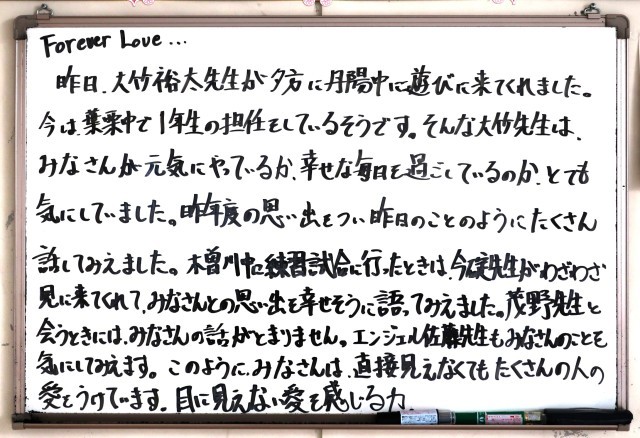 Forever Love...
昨日、大竹裕太先生が夕方に丹陽中に遊びに来てくれました。
今は、葉栗中で1年生の担任をしているそうです。そんな大竹先生は、
みなさんが元気にやっているか、幸せな毎日を過ごしているのか、とても
気にしていました。昨年度の思い出をつい昨日のことのようにたくさん
話してみえました。木曽川中に練習試合に行ったときは、今 先生がわざわざ
見に来てくれて、みなさんとの思い出を幸せそうに語ってみえました。茂野先生と
会うときには、みなさんの話がとまりません。エンジェル佐藤先生もみなさんのことを
気にしてみえます。このように、みなさんは、直接見えなくてもたくさんの人の
愛をうけています。目に見えない愛を感じる力